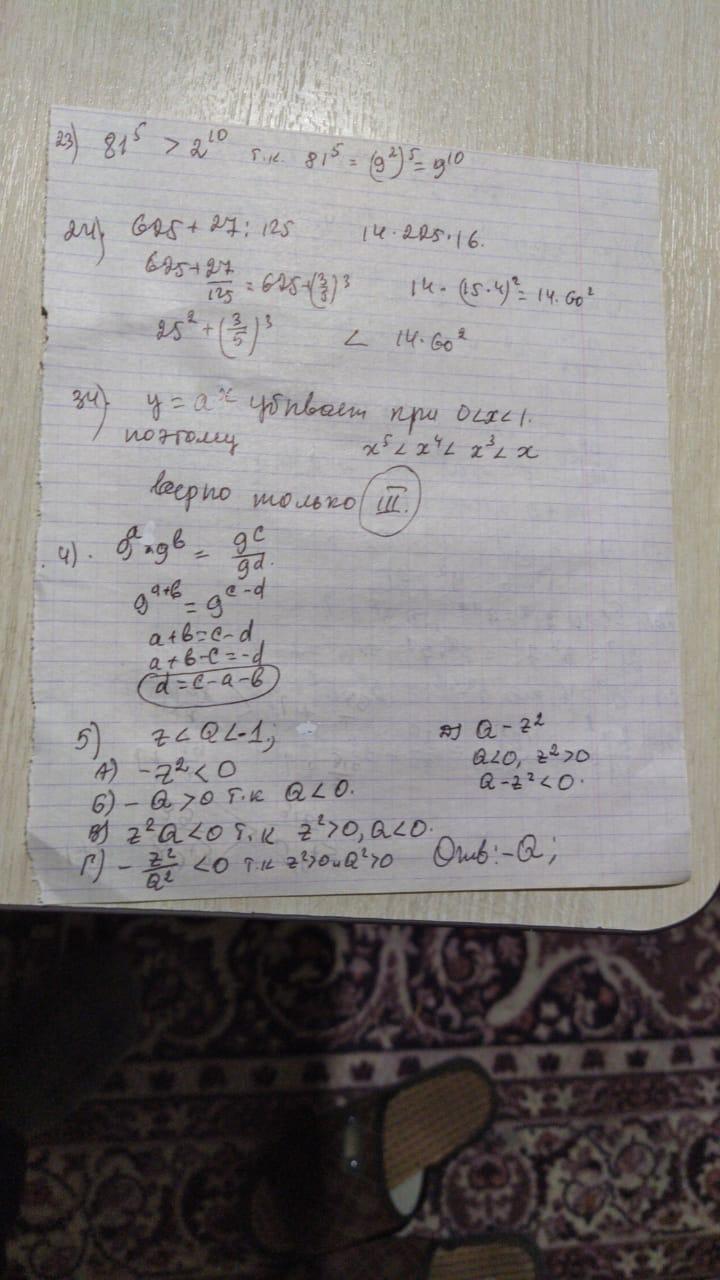 23) 81⁵ > 2¹⁰ т.к. 81⁵ = (9²)⁵ = 9¹⁰
24) 625 + 27 : 125 14 · 225 · 16.
625 + 27/125 = 625 + (3/5)³ 14 · (15 · 4)² = 14 · 60²
25² + (3/5)³ < 14 · 60²
34) y = aˣ убывает при 0<x<1.
поэтому x⁵ < x⁴ < x³ < x
верно только III.
4). 9ᵃ · 9ᵇ = 9ᶜ/9ᵈ.
9ᵃ⁺ᵇ = 9ᶜ⁻ᵈ
a+b=c-d
a+b-c=-d
d=c-a-b
5) z < Q < -1;
А) -z² < 0
Б) - Q > 0 т.к Q < 0.
В) z²Q < 0 т.к z² > 0, Q < 0.
Г) - z²/Q² < 0 т.к z²>0 и Q²>0
Д) Q - z²
Q<0, z²>0
Q-z² < 0.
Отв: -Q;